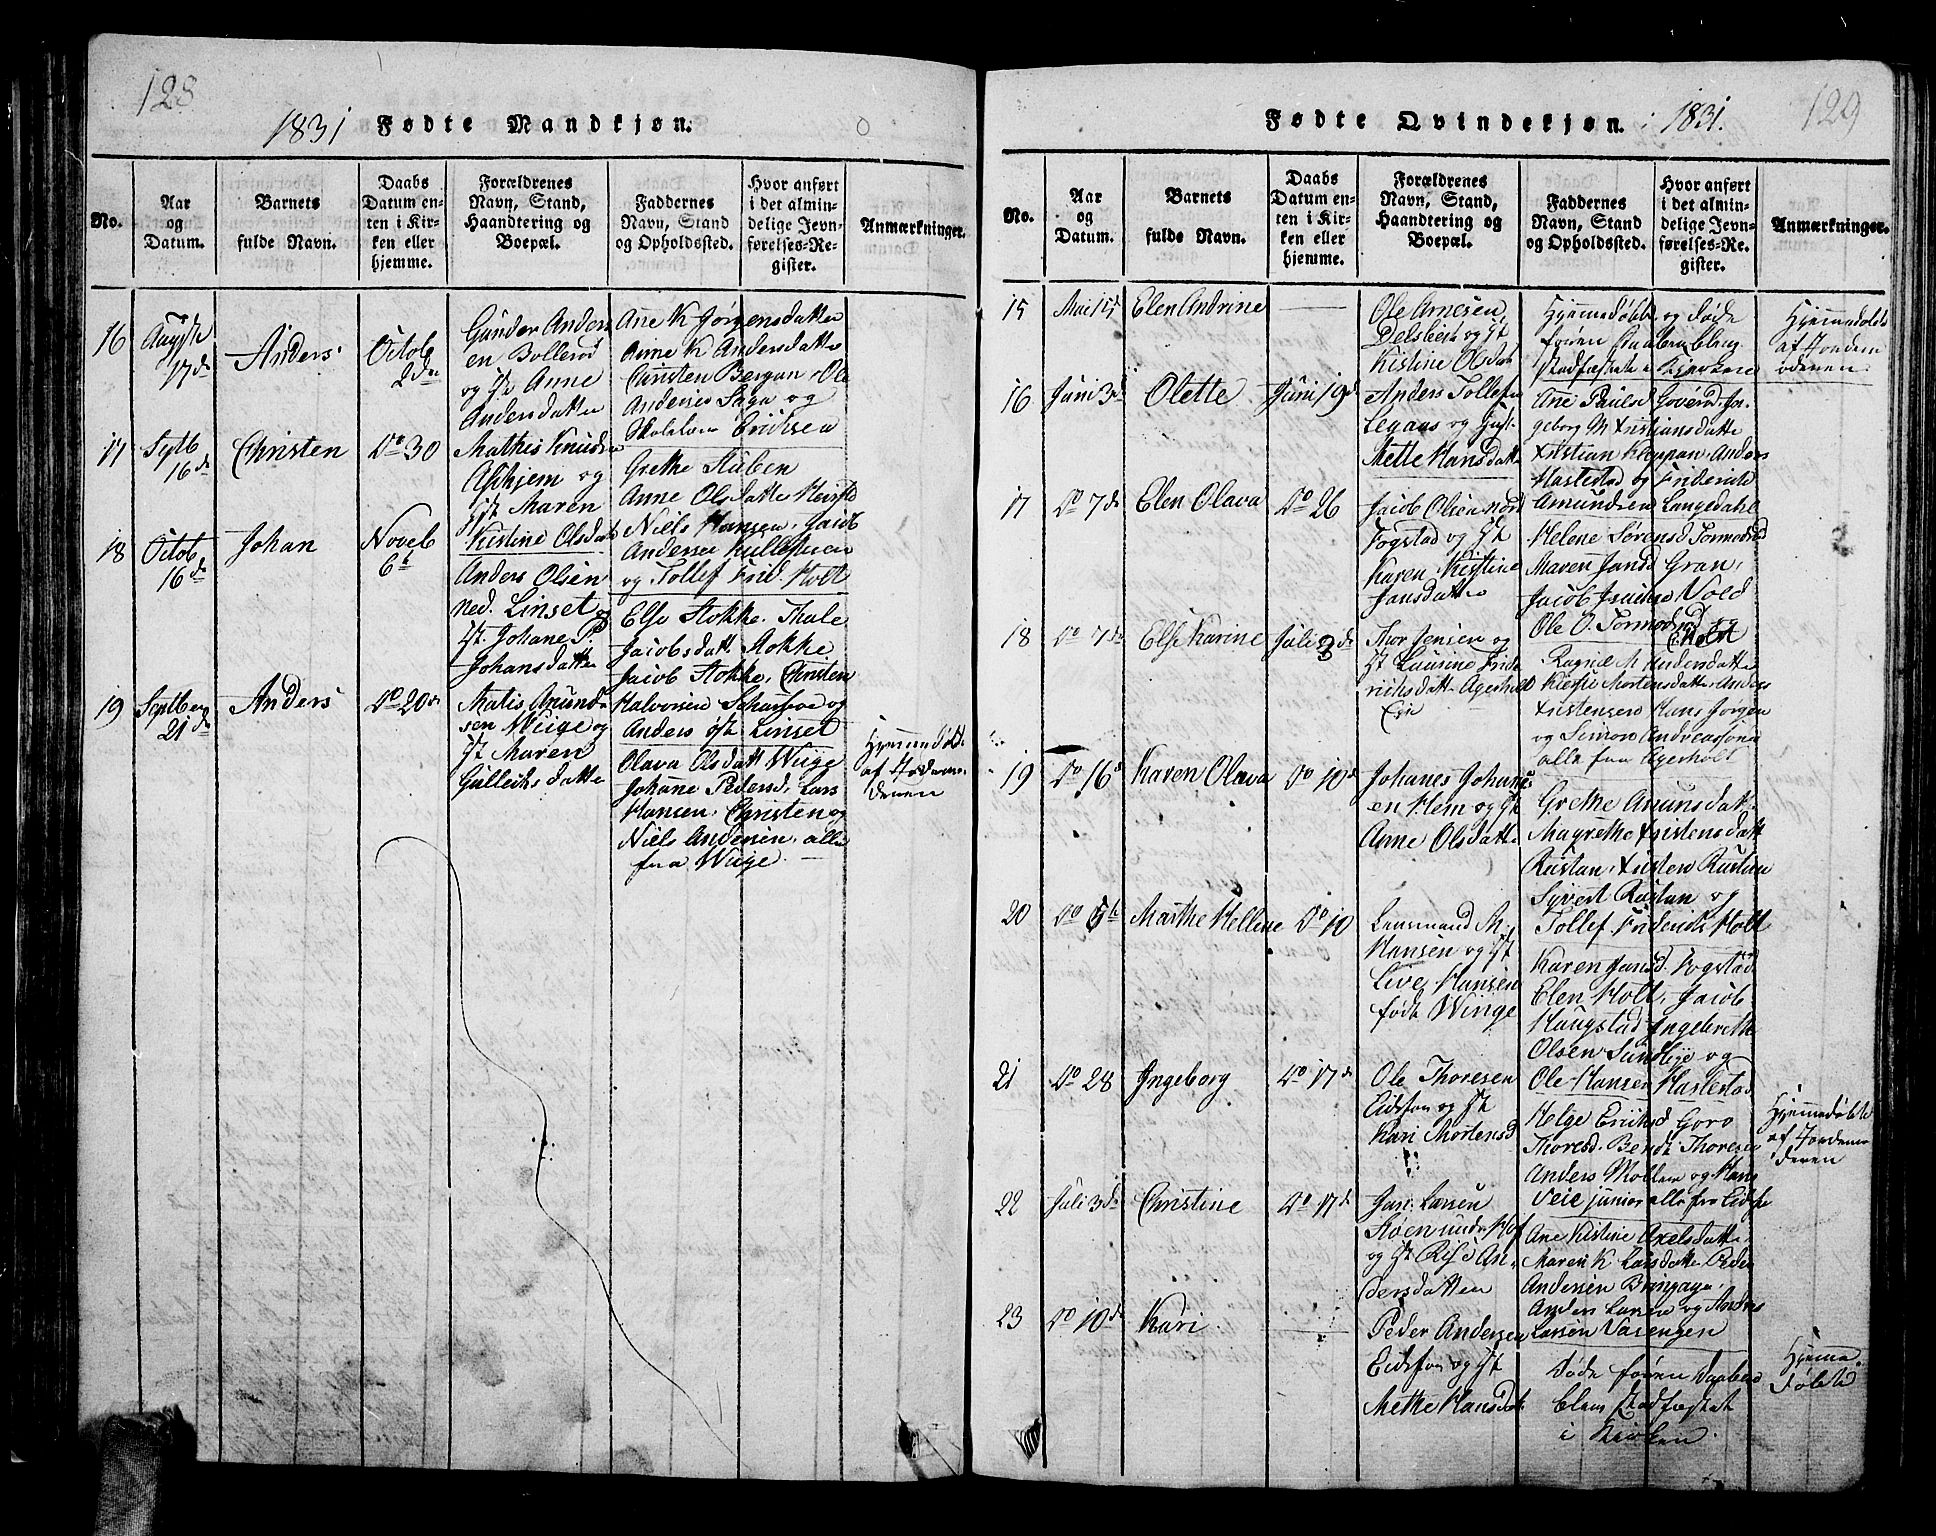 128
1831 Fødte Mandkjøn.
No.
Aar
og
Datum.
Barnets
fulde Navn.
Daabs
Datum en-
ten i Kir-
ken eller
hjemme.
Forældrenes
Navn, Stand,
Haandtering og
Boepæl.
Faddernes
Navn, Stand
og Opholdssted.
Hvor anført
i det almin-
delige Jevn-
førelses-Re-
gister.
Anmærkninger.
16
17de
Anders
Octob
2den
Gunder Anders
en Bollerød
og Anne
Andersdatter
Ane K Jørgensdatter
Anne K Andersdatter
Christen Bergan, Ole
Andersen Saga og
Eriksen
17
Septb
16de
Christen
Do 30
Mathis Knuds
Askjem og
Maren
Kistine Olsdatt
Grethe Stuben
Anne Olsdatter
Niels Hansen, Jacob
Andersen
og Tollef Frid. Holt
18
Octob
16de
Johan
Noveb
6te
Anders Olsen
ned. Linset og
Johane P
Johansdatter
Else Stokke. Thale
Jacobsdatt Stokke
Jacob Stokke, Christen
Halvorsen og
Anders Linset
19
Septbr
21de
Anders
Do 20de
Matis Amund
sen Wiige og
Maren
Gulleichsdatter
Olava Olsdatt Wiige
Johane Pedersd, Lars
Hansen, Christen og
Niels Andersen, alle
fra Wiige.
Hjemmedøbt
af Jordemo-
deren
129
Fødte Qvindekjøn. 1831.
No.
Aar
og
Datum.
Barnets
fulde Navn.
Daabs
Datum en-
ten i Kir-
ken eller
hjemme.
Forældrenes
Navn, Stand,
Haandtering og
Boepæl.
Faddernes
Navn, Stand
og Opholdssted.
Hvor anført
i det almin-
delige Jevn-
førelses-Re-
gister.
Anmærkninger.
15
Mai 15de
Elen Andrine
Ole Arnesen
Kistine Olsdatt
Hjemmedøbt og døde
førend Daaben blev
stadfæstet i Kjerken
Hjemmedøbt
af Jordem
oderen
16
Juni 3de
Olette
Juni 19de
Anders Tollefsen
og
Mette Hansdatte
Ane Paulsd
geborg M Kristiansdatte
Kristian Kloppan, Anders
Hastestad og Friderik
Amundsen Langedahl
17
Do 7de
Elen Olava
Do 26
Jacob Olsen
Fogstad og
Karen Kistine
Jansdatte
Helene Sørensd Tormodsrød
Maren Jansd Gran,
Jacob Vold
Ole O. Tormodsrød
Holt
18
Do 7de
Else Karine
Juli 3de
Thor Jensen og
Laurine Frid
richsdatt Agerholt
Eie
Ragnil M Andersdatte
Mortensdatte, Anders
Kristensen Hans Jørgen
og Simon Andreassøn
alle fra Agerholt
19
Do 16de
Karen Olava
Do 10de
Johanes Johans
en Hem og
Anne Olsdatte
Grethe Amunsdatt.
Magrethe Kristensdatt
Rustan, Kristen Rustan
Syvert Rustan og
Tollef Friderik Holt
20
Marthe Hellene
Do 10
Lensmand M.
Hansen og
Live Hansen
født Wiige
Karen Jansd. Fogstad
Elen Holt, Jacob
Haugstad Ingebreth
Olsen Sundbye og
Ole Hansen Hastestad
21
Do 28
Ingeborg
Do 17de
Ole Thoresen
Eidsfos og
Kari Mortensd
Helge Eriksd Goro
Thoresd. Bendt Thoresen
Anders Mollem og Hans
Veie junior alle fra Eidsfos
Hjemmedøbt
af Jordemo
deren
22
Juli 3de
Christine
Do 17de
Jan Larsen
Hof
og Rise An-
dersdatten
Ane Kistine Axelsdatte
Maren K Larsdatte Peder
Andersen
Anders Larsen og Andres
Larsen Vasengen
23
Do 10de
Kari
Peder Andersen
Eidsfos og
Mette Hansdatt
Døde førend Daaben
blev stadfæstet
i Kirken.
Hjemme
døbt